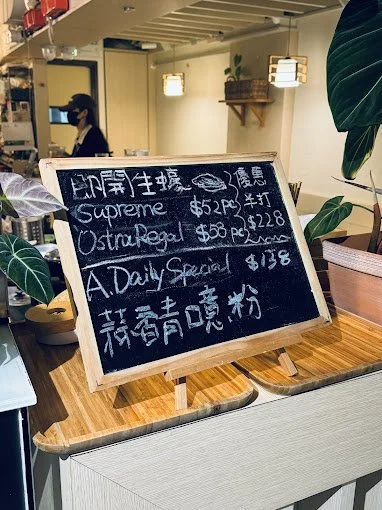 即開生蠔 優惠
Supreme $52pc 半打
OstraRegal $58pc $228
A. Daily Special $138
蒜香青口噴粉